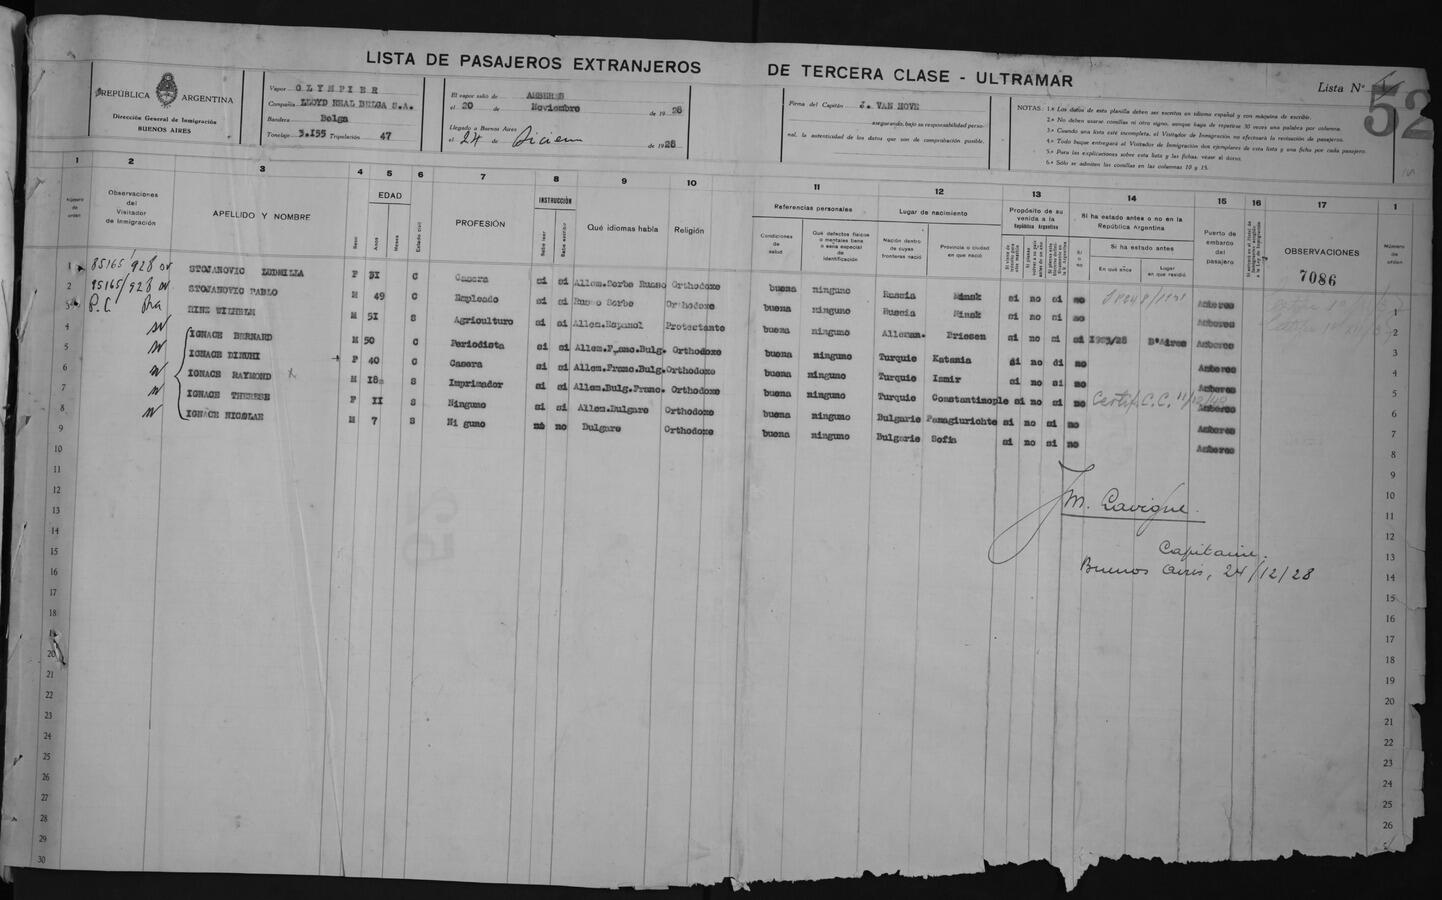 LISTA DE PASAJEROS EXTRANJEROS DE TERCERA CLASE - ULTRAMAR
Lista Nº 52
REPÚBLICA ARGENTINA
Dirección General de Inmigración
BUENOS AIRES
Vapor OLYMPIER
Compañía LLOYD REAL BELGA S.A.
Bandera Belga
Tonelaje 3.155 Tripulación 47
El vapor salió de AMBERES
el 20 de Noviembre de 1928
Llegado a Buenos Aires
el 24 de Diciem de 1928
Firma del Capitán J. VAN HOVE
asegurando, bajo su responsabilidad perso-
nal, la autenticidad de los datos que son de comprobación posible.
NOTAS: 1.ª Los datos de esta planilla deben ser escritos en idioma español y con máquina de escribir.
2.ª No deben usarse comillas ni otro signo, aunque haya de repetirse 30 veces una palabra por columna.
3.ª Cuando una lista esté incompleta, el Visitador de Inmigración no efectuará la revisación de pasajeros.
4.ª Todo buque entregará al Visitador de Inmigración dos ejemplares de esta lista y una ficha por cada pasajero.
5.ª Para las explicaciones sobre esta lista y las fichas, vease el dorso.
6.ª Sólo se admiten las comillas en las columnas 10 y 15.
1 2 3 4 5 6 7 8 9 10 11 12 13 14 15 16 17 1
Número de orden
Observaciones del Visitador de Inmigración
APELLIDO Y NOMBRE
Sexo
EDAD
Años
Meses
Estado civil
PROFESIÓN
INSTRUCCIÓN
Sabe leer
Sabe escribir
Qué idiomas habla
Religión
Referencias personales
Condiciones de salud
Qué defectos físicos o mentales tiene o seña especial de identificación
Lugar de nacimiento
Nación dentro de cuyas fronteras nació
Provincia o ciudad en que nació
Propósito de su venida a la República Argentina
Si ha estado antes o no en la República Argentina
Si o no
Si ha estado antes
En qué años
Lugar en que residió
Puerto de embarco del pasajero
OBSERVACIONES
7086
Número de orden
1 85165/928 STOJANOVIC LUDMILLA F 31 C Casera si si Allem.Serbe Russo Orthodoxe buena ninguno Russia Minsk si no si no Amberes 1
2 85165/928 STOJANOVIC PABLO M 49 C Empleado si si Russo Serbe Orthodoxe buena ninguno Russia Minsk si no si no Amberes 2
3 P.C. WILHELM M 51 S Agriculturo si si Allem.Espanol Protestante buena ninguno Alleman. Briesen si no si si 1923/28 Bs Aires Amberes 3
4 IGNACE BERNARD M 50 C Periodista si si Allem.Franc.Bulg. Orthodoxe buena ninguno Turquie Katania si no si no Amberes 4
5 IGNACE F 40 C Casera si si Allem.Franc.Bulg. Orthodoxe buena ninguno Turquie Ismir si no si no Amberes 5
6 IGNACE RAYMOND M 18 S Imprimador si si Allem.Bulg.Franc. Orthodoxe buena ninguno Turquie Constantinople si no si no Certif. C.C. Amberes 6
7 IGNACE THERESE F 11 S Ninguno si si Allem.Bulgare Orthodoxe buena ninguno Bulgarie Panagiurichte si no si no Amberes 7
8 IGNACE NICOLAE M 7 S Ni guno no no Bulgare Orthodoxe buena ninguno Bulgarie Sofia si no si no Amberes 8
9
10
11
12
13
14
15
16
17
18
19
20
21
22
23
24
25
26
27
28
29
30
9
10
11
12
13
14
15
16
17
18
19
20
21
22
23
24
25
26
M. Lavigne
Capitaine.
Buenos Aires, 24/12/28